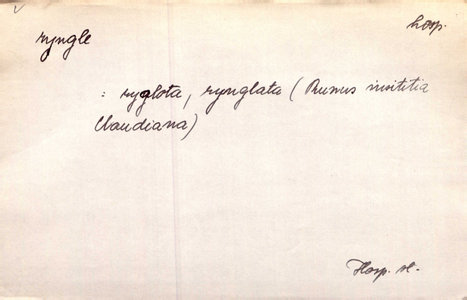 hosp.
ryngle
: ryglota, rynglata (Prunus insititia
Claudiana)
Hosp. sl.